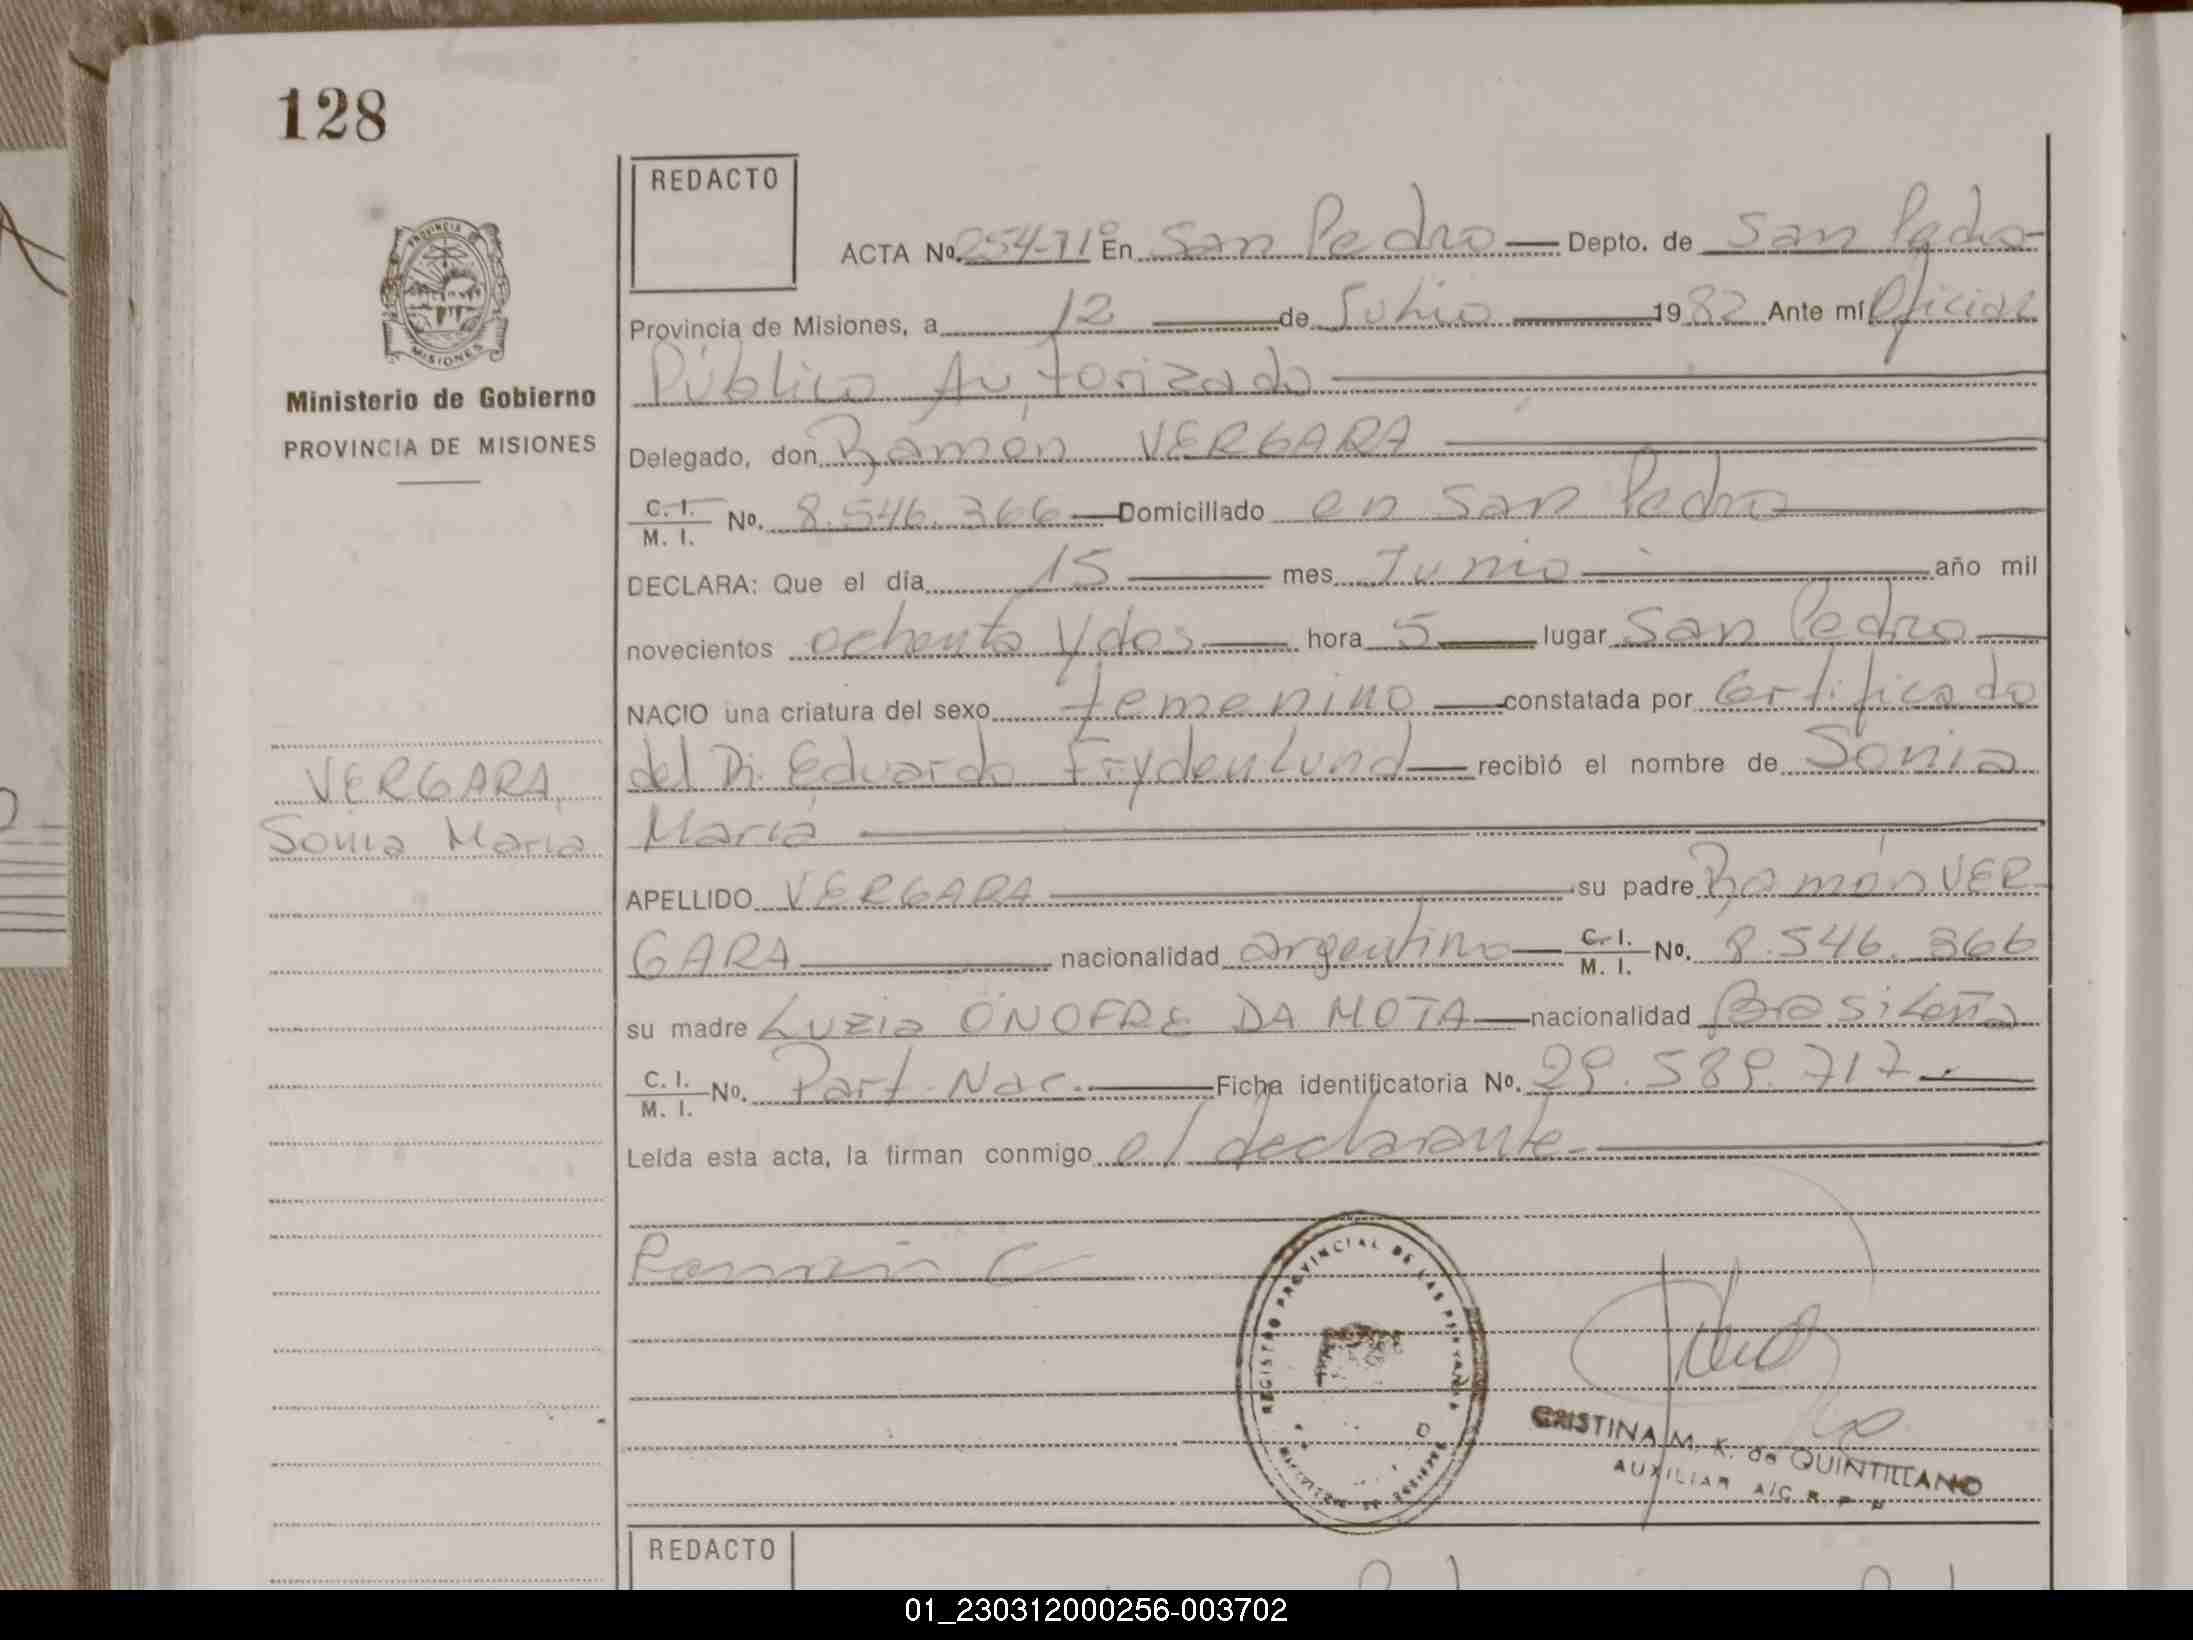 128
REDACTO
ACTA Nº. 254-T1º En San Pedro Depto. de San Pedro
PROVINCIA
MISIONES
Provincia de Misiones, a 12 de Julio 1982 Ante mí Oficial
Público Autorizado
Ministerio de Gobierno
PROVINCIA DE MISIONES
Delegado, don Ramón VERGARA
C. I.
M. I. Nº. 8.546.366 Domiciliado en San Pedro
DECLARA: Que el día 15 mes Junio año mil
novecientos ochenta y dos hora 5 lugar San Pedro
NACIO una criatura del sexo femenino constatada por Certificado
del Dr. Eduardo Frydenlund recibió el nombre de Sonia
María
VERGARA,
Sonia María
APELLIDO VERGARA su padre Ramón VER
GARA nacionalidad argentino C. I. M. I. Nº. 8.546.366
su madre Luzia ONOFRE DA MOTA nacionalidad Brasileña
C. I.
M. I. Nº. Part. Nac. Ficha identificatoria Nº. 29.589.717
Leída esta acta, la firman conmigo el declarante
Ramón
REGISTRO PROVINCIAL DE LAS PERSONAS
CRISTINA M. K. de QUINTILLANO
AUXILIAR A/C R. P. P.
REDACTO
01_230312000256-003702